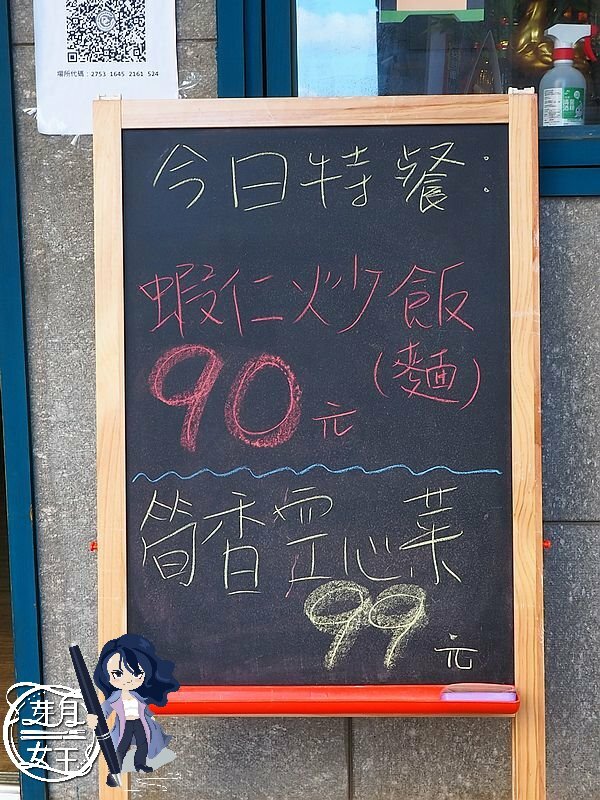 場所代碼：2753 1645 2161 524
今日特餐：
蝦仁炒飯
(麵)
90元
筍香空心菜
99元
月
女王